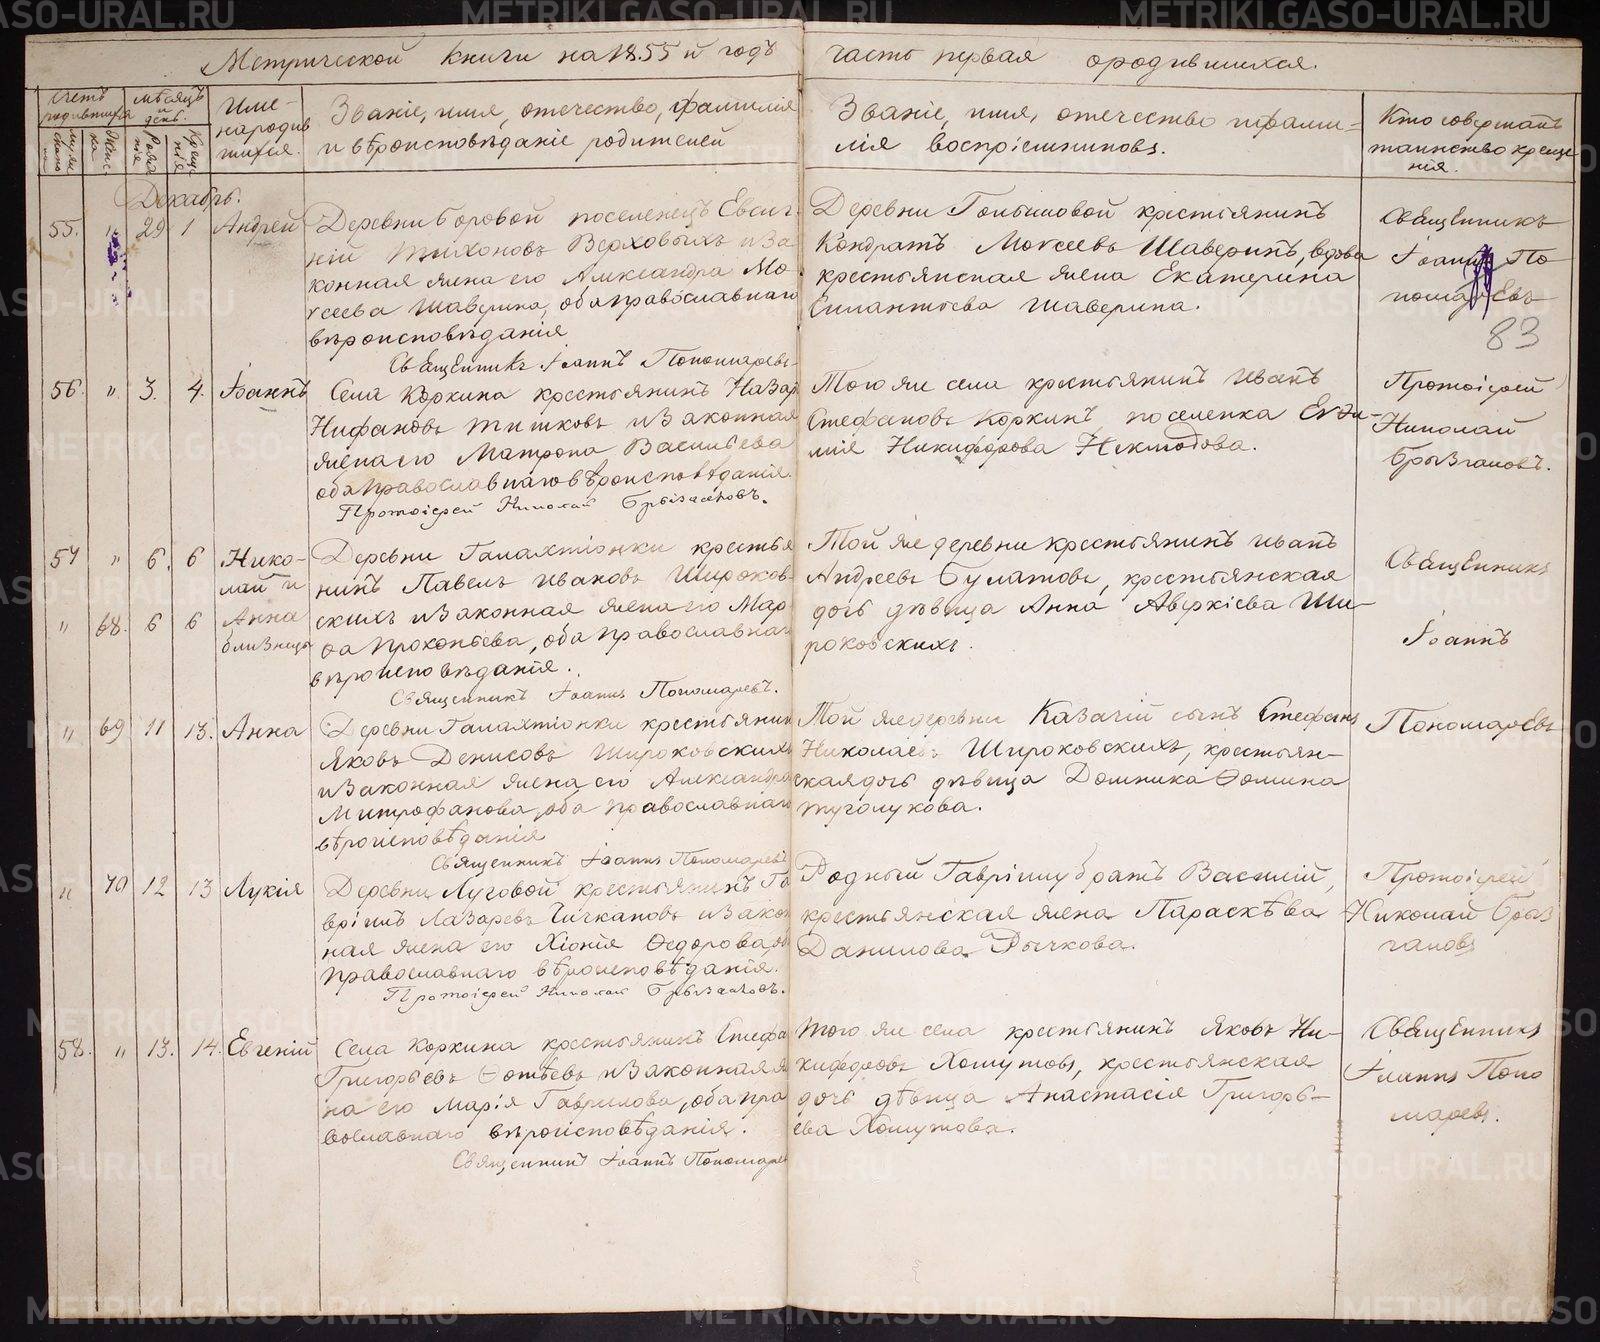 METRIKI.GASO-URAL.RU
Метрической книги на 1855й годъ часть первая о родившихся.
Счетъ родившихся
мужс
женс
мѣсяцъ и день.
Рожденія
Крещенія
Имена родившихся.
Званіе, имя, отечество, фамилія
и вѣроисповѣданіе родителей
Званіе, имя, отечество и фами-
лія воспріемниковъ.
Кто совершалъ
таинство креще
нія.
Декабрь.
55. " 29 1 Андрей
Деревни Боровой поселенецъ Евсиг-
ній Тихоновъ Верховыхъ и за
конная жена его Александра Мо
сеева Шаверина, оба православнаго
вѣроисповѣданія
Священникъ Іоаннъ Пономаревъ
Деревни крестьянинъ
Кондратъ Моисеевъ Шаверинъ, вдова
крестьянская жена Екатерина
Шаверина.
Священникъ
Іоаннъ По
номаревъ
83
56. " 3. 4. Іоаннъ
Села Коркина крестьянинъ Назаръ
Нифановъ Тишковъ и законная
жена его Матрона Васильева
оба православнаго вѣроисповѣданія.
Протоіерей Николай Брызгаловъ.
Того же села крестьянинъ Иванъ
Стефановъ Коркинъ, поселенка Евѳи-
мія Никифорова
Протоіерей
Николай
Брызгаловъ.
57 " 6. 6 Нико-
лай и
" 68. 6 6 Анна
близнецы
Деревни Галактіонки крестья
нинъ Павелъ Ивановъ Широков
скихъ и законная жена его Мар
ѳа Прокопьева, оба православнаго
вѣроисповѣданія.
Священникъ Іоаннъ Пономаревъ.
Той же деревни крестьянинъ Иванъ
Андреевъ Булатовъ, крестьянская
дочь дѣвица Анна Аверкіева Ши-
роковскихъ.
Священникъ
Іоаннъ
" 69 11 13. Анна
Деревни Галактіонки крестьянинъ
Яковъ Денисовъ Широковскихъ
и законная жена его Александра
Митрофанова, оба православнаго
вѣроисповѣданія
Священникъ Іоаннъ Пономаревъ
Той же деревни Казачій сынъ Стефанъ
Николаевъ Широковскихъ, крестьян-
ская дочь дѣвица Домника Ѳомина
Туголукова.
Пономаревъ
" 70 12 13 Лукія
Деревни Луговой крестьянинъ Га
вріилъ Лазаревъ Чичкановъ и закон
ная жена его Хіонія Ѳедорова, оба
православнаго вѣроисповѣданія.
Протоіерей Николай Брызгаловъ.
Родный Гавріилу братъ Василій,
крестьянская жена Параскѣва
Данилова Рычкова.
Протоіерей
Николай Брыз
галовъ
58. " 13. 14. Евгеній
Села Коркина крестьянинъ Стефа
Григорьевъ Ѳотѣевъ и законная же
на его Марія Гаврилова, оба пра
вославнаго вѣроисповѣданія.
Священникъ Іоаннъ Пономаре
Того же села крестьянинъ Яковъ Ни-
кифоровъ Хомутовъ, крестьянская
дочь дѣвица Анастасія Григорь-
ева Хомутова.
Священникъ
Іоаннъ Поно
маревъ.